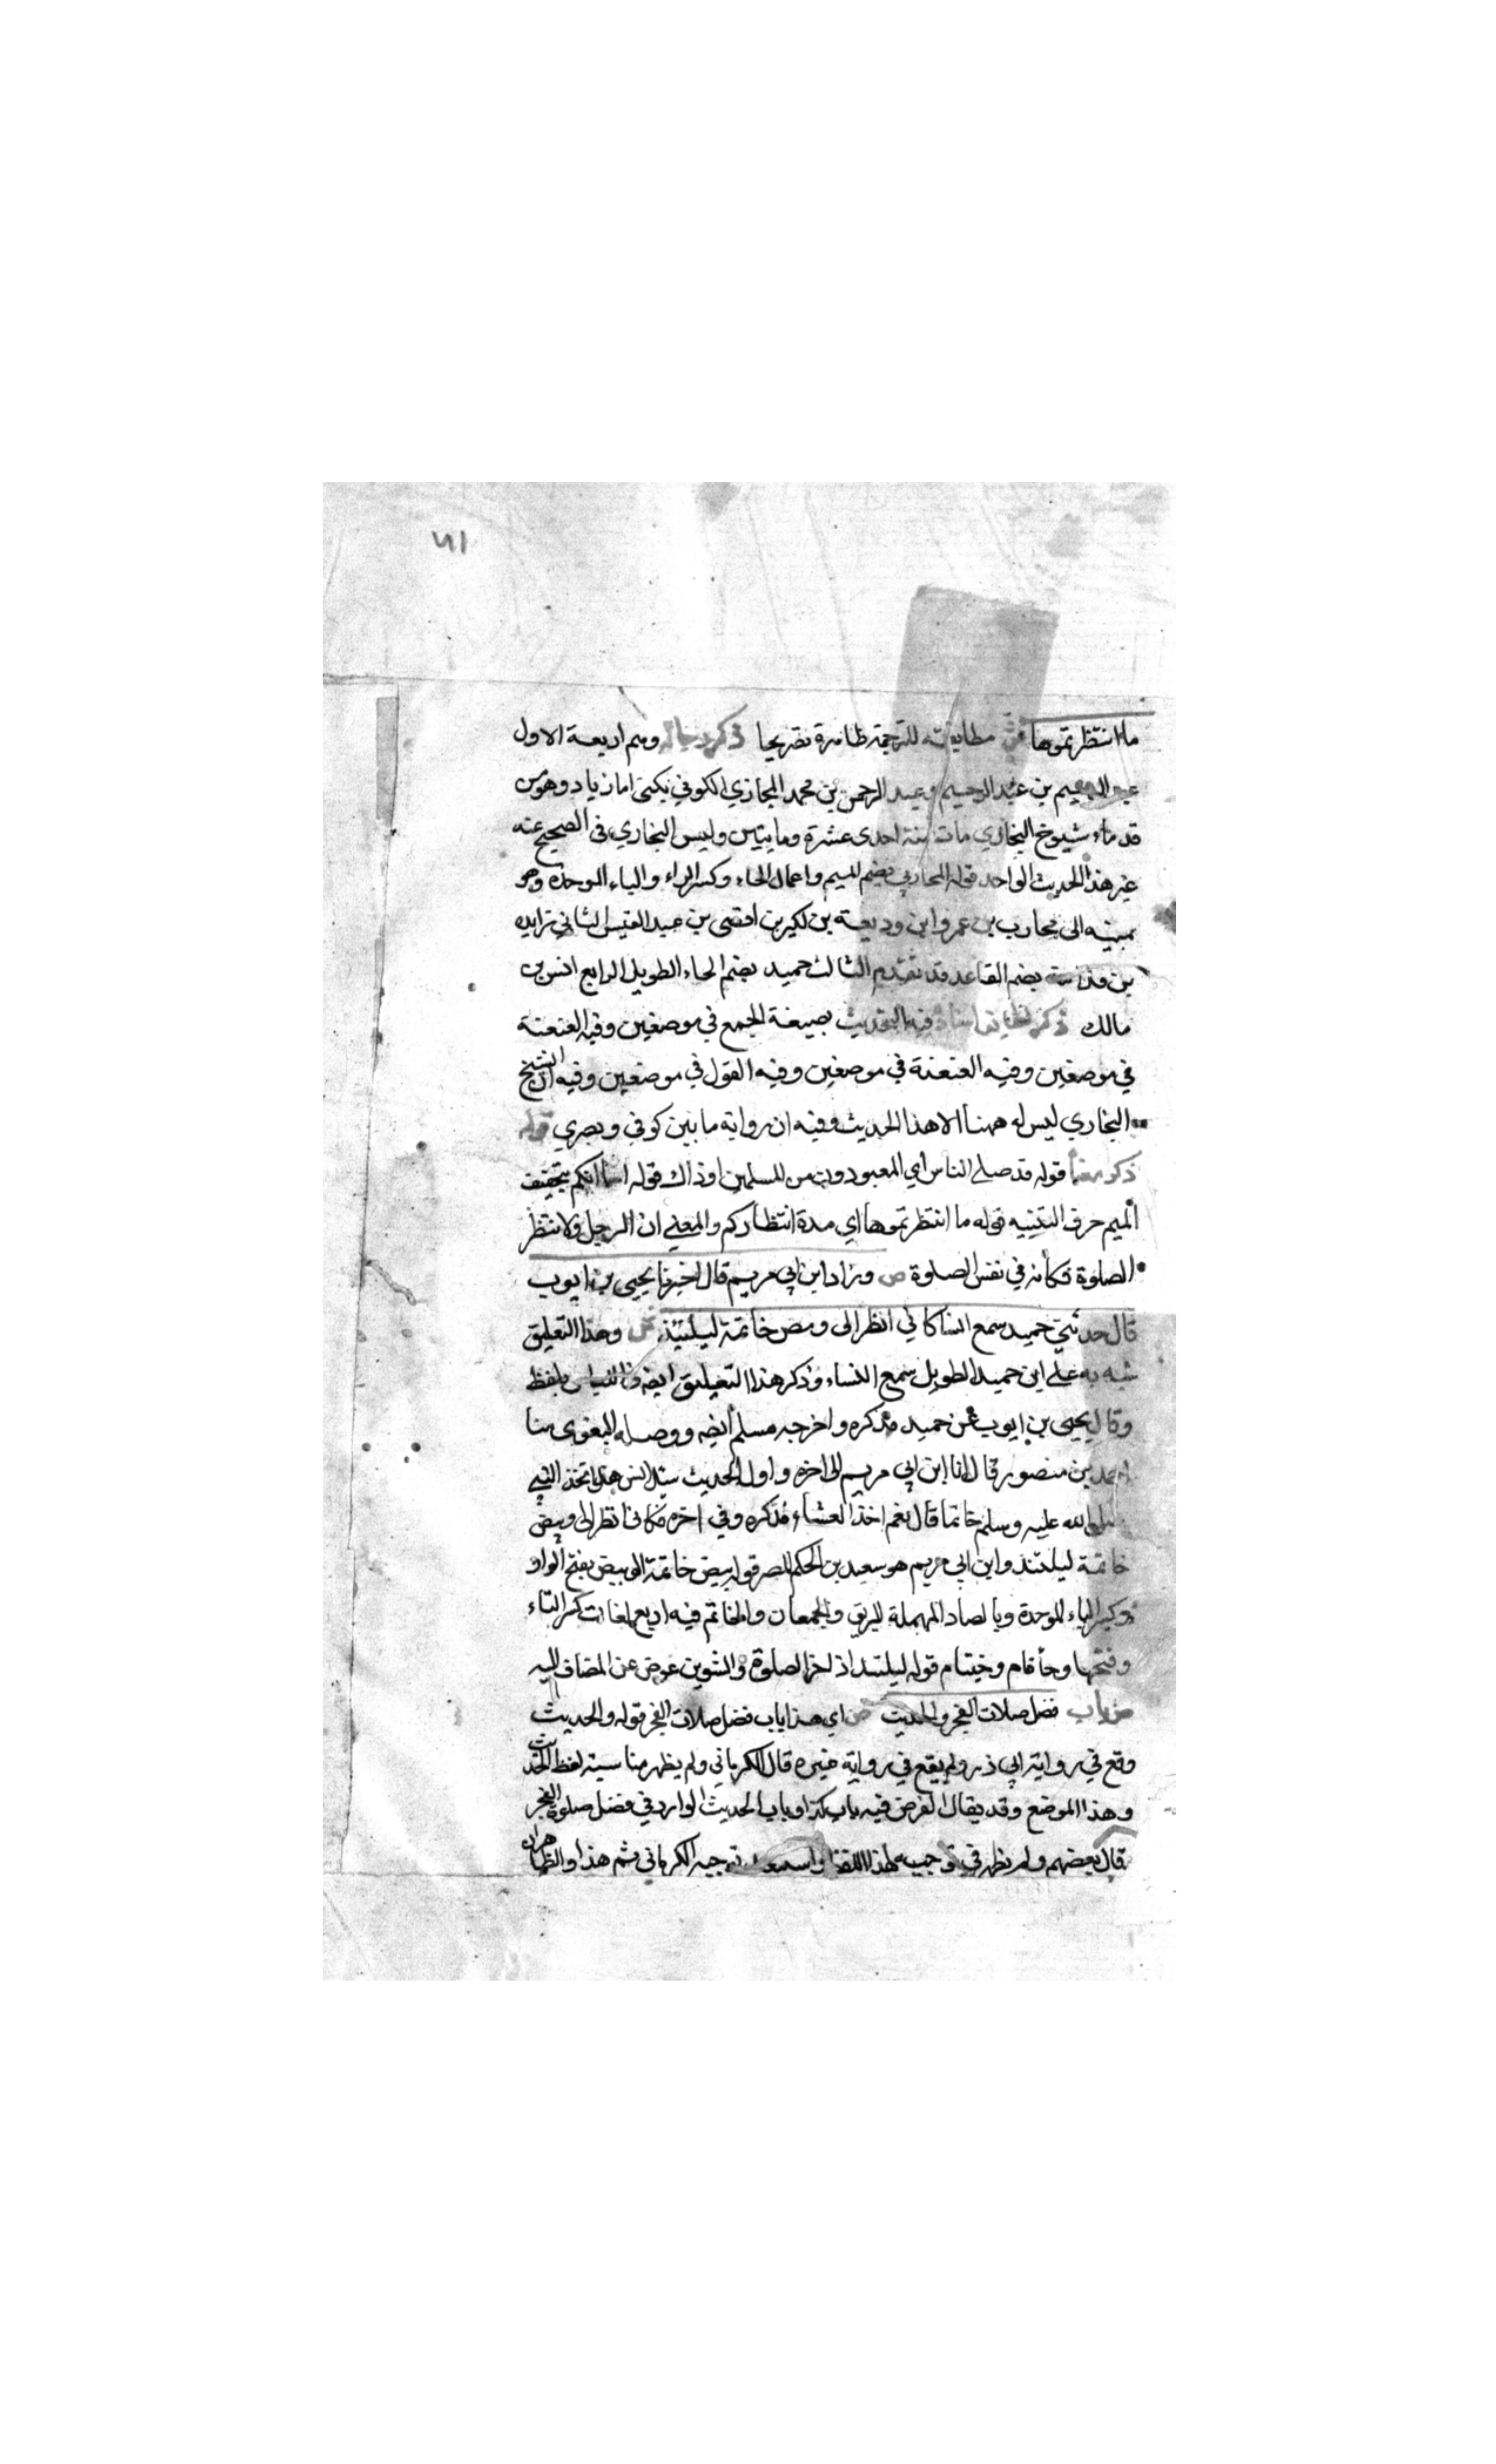 ٧١
ما انتظرتموها ش مطابقته للترجمة ظاهرة تصريحا ذكر رجاله وهم اربعة الاول
عبد الرحيم بن عبد الرحيم وعبد الرحمن بن محمد المحاربي الكوفي يكنى ابا زياد وهو من
قدماء شيوخ البخاري مات سنة احدى عشرة ومايتين وليس البخاري في الصحيح عنه
غير هذا الحديث الواحد قوله المحاربي بضم الميم واعمال الحاء وكسر الراء والباء الموحدة وهو
نسبة الى محارب بن عمرو ابن وديعة بن لكير بن افصى بن عبد القيس الثاني زايده
بن قدامة بضم القا عد قد تقدم الثالث حميد بضم الحاء الطويل الرابع انس بن
مالك ذكر لطايف اسناده فيه التحديث بصيغة الجمع في موضعين وفيه العنعنة
في موضعين وفيه العنعنة في موضعين وفيه القول في موضعين وفيه ان الشيخ
البخاري ليس له ههنا الا هذا الحديث وفيه ان رواية ما بين كوفي وبصري قوله
ذكر معناه قوله قد صلى الناس اي المعبودون من المسلمين اذ ذاك قوله اما انكم بتخفيف
الميم حرف التنبيه قوله ما انتظرتموها اي مدة انتظاركم والمعنى ان الرجل ولا نتظر
الصلوة فكأنه في نفس الصلوة ص وزاد ابن ابي مريم قال اخبرنا يحيى بن ايوب
قال حدثني حميد سمع انسا كاني انظر الى وبص خاتمة ليلتئذ ش وهذا التعليق
شبه به على ابن حميد الطويل سمع النساء وذكر هذا التعليق ايضا في اللباس بلفظ
وقال يحيى بن ايوب عن حميد فذكره واخرجه مسلم ايضه ووصله البغوى سا
احمد بن منصور قال انا ابن ابي مريم الى اخره واول الحديث سئل انس هل اتخذ النبي
صلى الله عليه وسلم خاتما قال نعم اخذ العشاء فذكره وفي اخره فكاني انظر الى وبيض
خاتمة ليلتئذ وابن ابي مريم هو سعيد بن الحكم المصر قوله بيض خاتمة الوبيض بفتح الواو
وكسر الباء الموحدة وبالصاد المهملة البريق والجمعان والخاتم فيه اربع لغات كسر التاء
وفتحها وخأ قام وخيتام قوله ليلتئذ اذ اخر الصلوة والتنوين عوض عن المضاف اليه
ص باب فضل صلات الفجر والحديث ش اي هذا باب فضل صلات الفجر قوله والحديث
وقع في رواية ابي ذر ولم يقع في رواية غيره قال الكرماني ولم يظهر مناسبة لفظ الحديث
وهذا الموضع وقد يقال الغرض فيه باب كذا وباب الحديث الوارد في فضل صلوة الفجر
قال بعضهم ولم يظهر في توجيه لهذا اللفظ توجيه الكرماني ثم هذا والظاهران